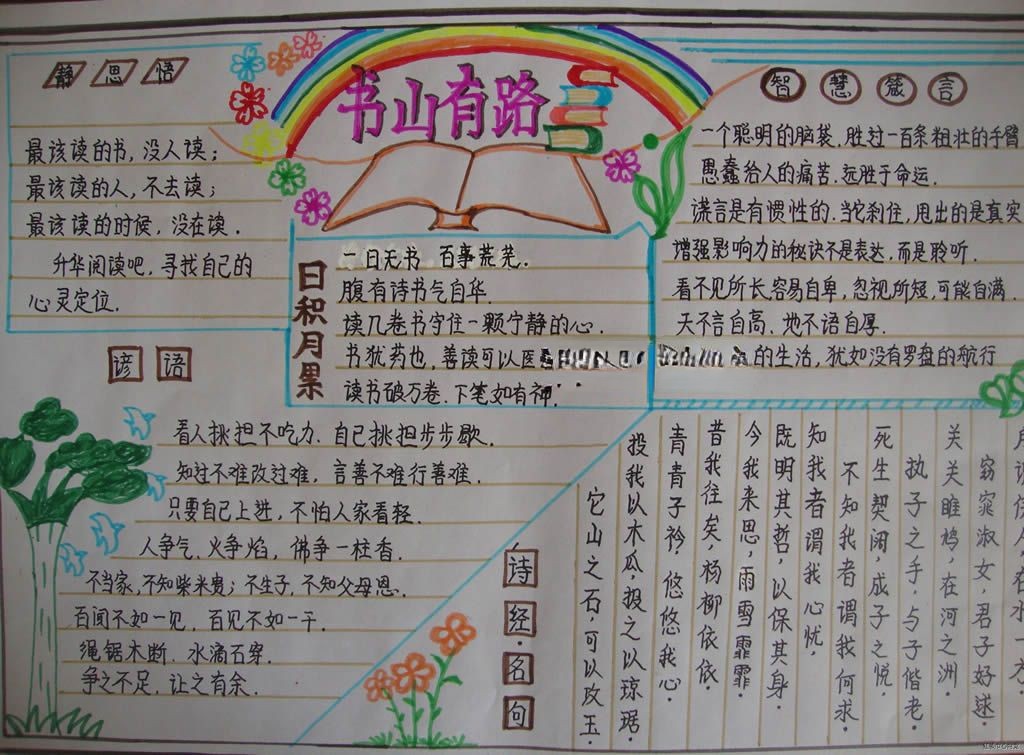 书山有路
静思悟
最该读的书，没人读；
最该读的人，不去读；
最该读的时候，没在读．
升华阅读吧，寻找自己的
心灵定位．
日积月累
一日无书 百事荒芜．
腹有诗书气自华．
读几卷书守住一颗宁静的心．
书犹药也，善读可以医
读书破万卷．下笔如有神．
智慧箴言
一个聪明的脑袋．胜过一百条粗壮的手臂
愚蠢给人的痛苦．远胜于命运．
谎言是有惯性的．当它刹住，甩出的是真实
增强影响力的秘诀不是表达，而是聆听．
看不见所长，容易自卑，忽视所短，可能自满．
天不言自高、地不语自厚．
的生活，犹如没有罗盘的航行
谚语
看人挑担不吃力．自己挑担步步歇．
知过不难改过难，言善不难行善难．
只要自己上进，不怕人家看轻．
人争气，火争焰，佛争一柱香．
不当家，不知柴米贵；不生子，不知父母恩．
百闻不如一见，百见不如一干．
绳锯木断．水滴石穿．
争之不足，让之有余．
诗经·名句
窈窕淑女，君子好逑．
关关雎鸠，在河之洲．
执子之手，与子偕老．
死生契阔，成子之悦，
不知我者谓我何求
知我者谓我心忧，
既明其哲，以保其身．
今我来思，雨雪霏霏．
昔我往矣，杨柳依依．
青青子衿，悠悠我心．
投我以木瓜，投之以琼琚．
它山之石，可以攻玉．